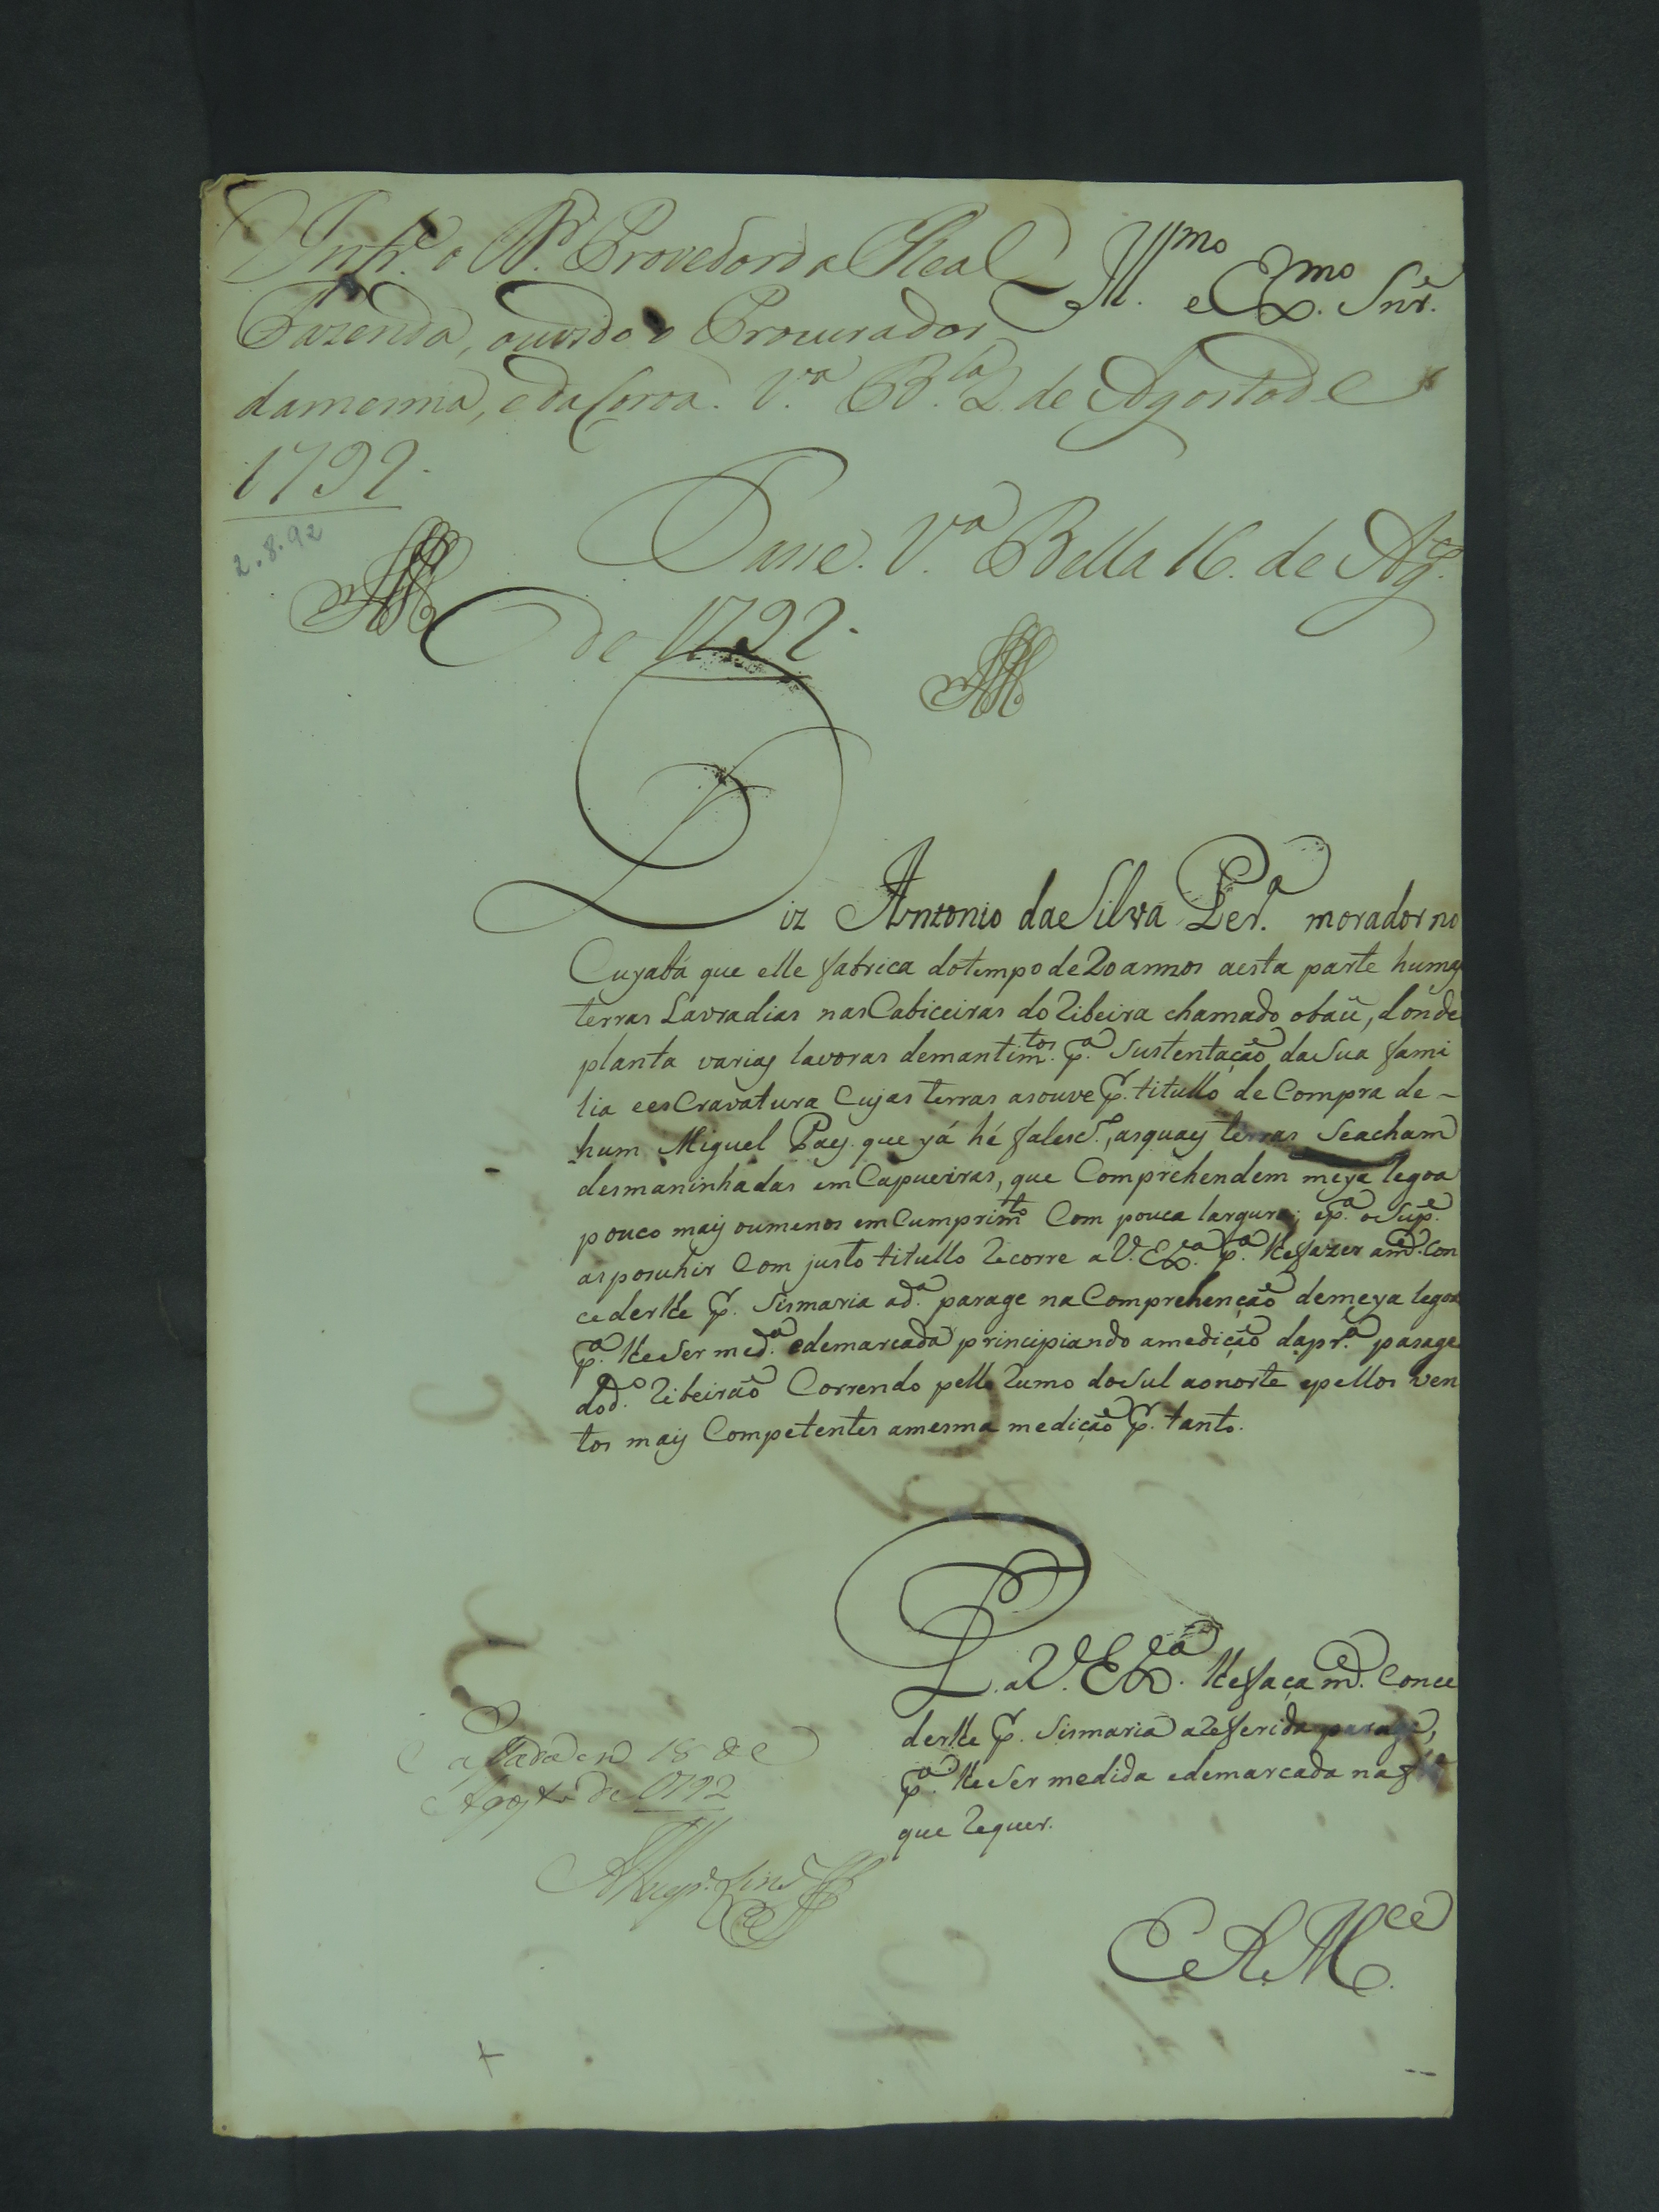 Infr.e o D.r Provedor da Real
Fazenda, ouvido o Procurador
da mesma, e da Coroa. V.a B.la 2 de Agosto de
1792.
2.8.92
Ill.mo e Ex.mo Snr.
Passe. V.a Bella 16. de Ag.to
de 1792.
Diz Antonio da Silva Per.a morador no
Cuyabá que elle fabrica do tempo de 20 annos a esta parte humas
terras Lavradias nas Cabiceiras do Ribeira chamado o baũ, donde
planta varias lavoras de mantim.tos p.a Sustentação da Sua fami
lia e esCravatura Cujas terras as ouve p.r titullo de Compra de-
hum Miguel Pays. que yá hé falescd.o, as quays terras Se acham
desmaninhadas em Capueiras, que Comprehendem meya legoa
pouco mays ou menos em Cumprim.to Com pouca largura; e p.a o Sup.e
as posuhir Com justo titullo Recorre a V. Ex.a p.a lhe fazer a md.e Con
ceder lhe p.r Sismaria a d.a parage na Comprehenção de meya legoa
p.a lhe Ser med.a e demarcada principiando a medição da pr.a parage
do d.o Ribeirão Correndo pello Rumo do Sul ao norte e pellos ven
tos mays Competentes a mesma medição p.r tanto.
P. a V. Ex.a lhe faça md.e Conce
der lhe p.r Sismaria a Referida parage,
p.a lhe Ser medida e demarcada na
que Requer.
Pasada em 18 de
Agosto de 1792
E. R. M.ce